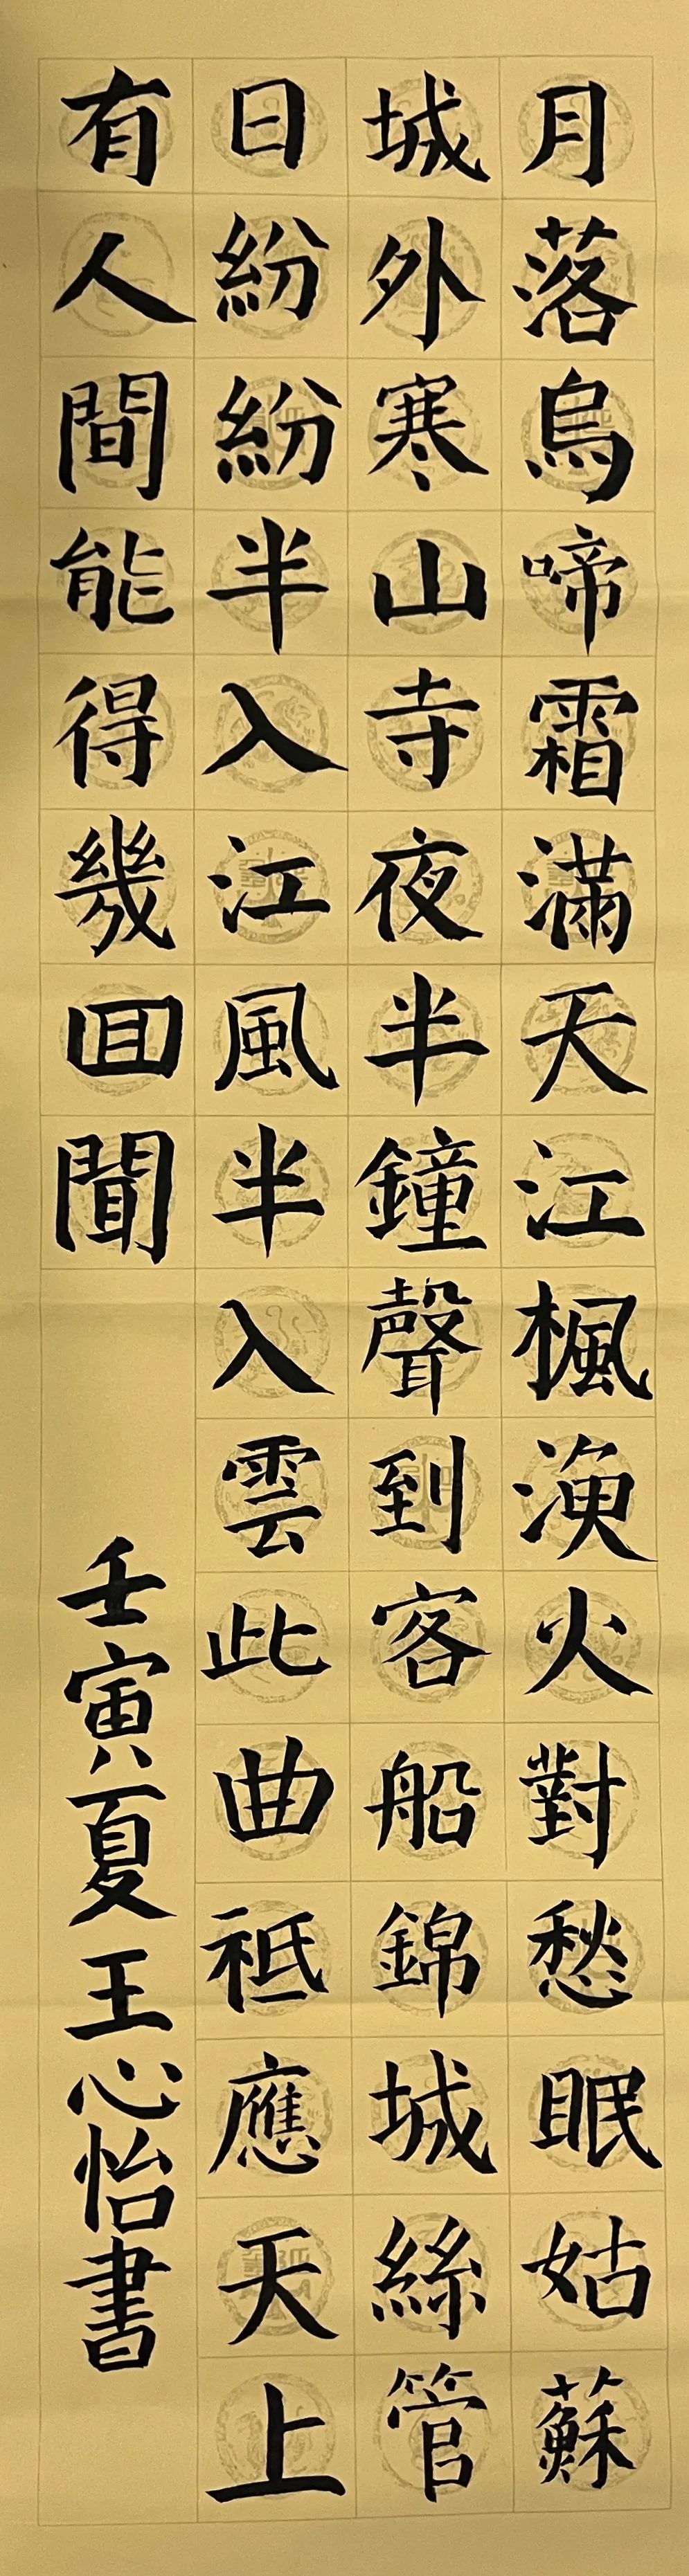 月落烏啼霜滿天江楓漁火對愁眠姑蘇
城外寒山寺夜半鐘聲到客船錦城絲管
日紛紛半入江風半入雲此曲祗應天上
有人間能得幾回聞
壬寅夏王心怡書